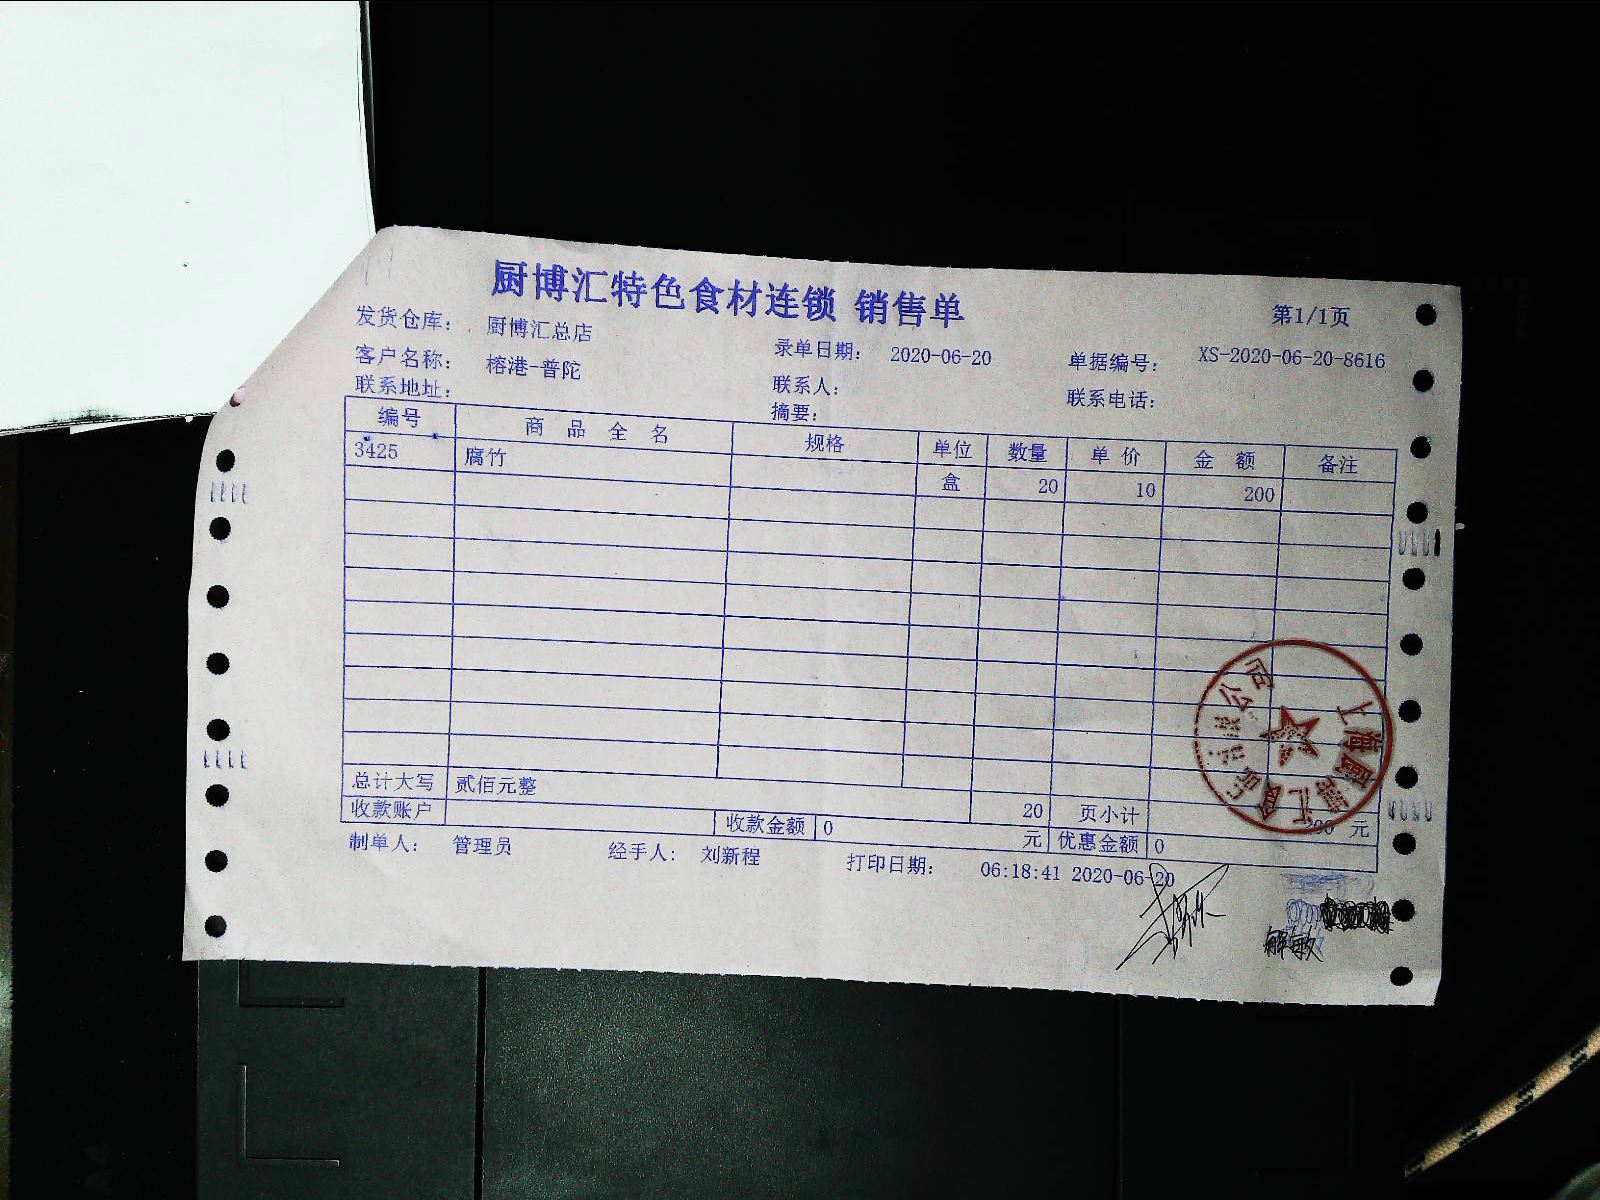 厨博汇特色食材连锁 销售单
第1/1页
发货仓库: 厨博汇总店
录单日期: 2020-06-20 单据编号: XS-2020-06-20-8616
客户名称: 榕港-普陀
联系人: 联系电话:
联系地址: 摘要:
编号 商品全名 规格 单位 数量 单价 金额 备注
3425 腐竹 盒 20 10 200
总计大写 贰佰元整 20 页小计 200 元
收款账户 收款金额 0 元 优惠金额 0
制单人: 管理员 经手人: 刘新程 打印日期: 06:18:41 2020-06-20
解敏